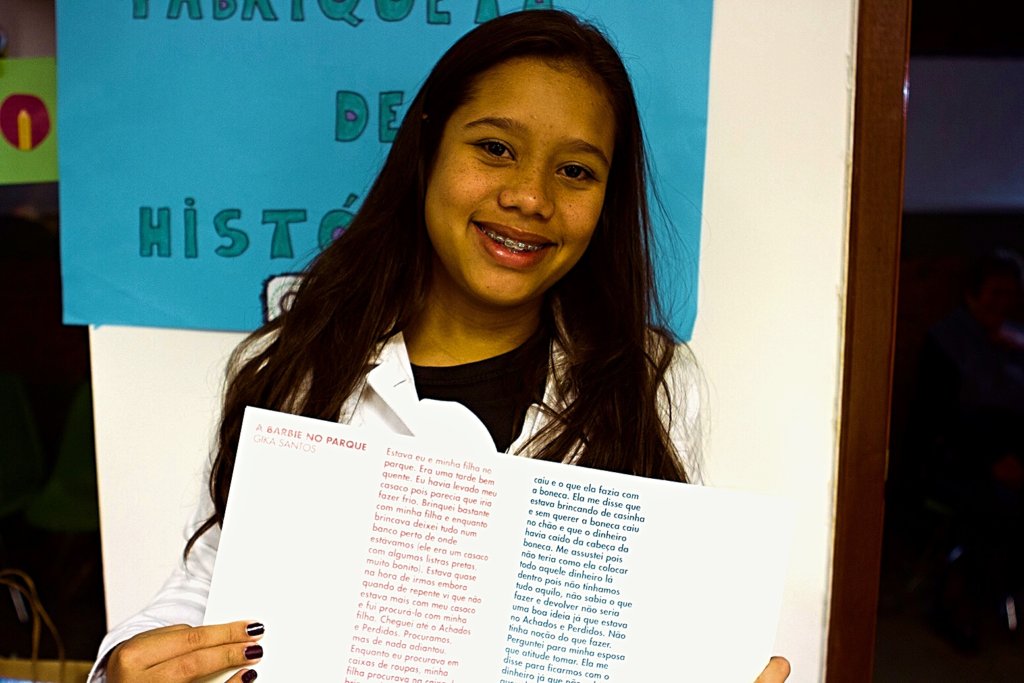 FABRIQUETA
DE
HISTÓ
A BARBIE NO PARQUE
GIKA SANTOS
Estava eu e minha filha no
parque. Era uma tarde bem
quente. Eu havia levado meu
casaco pois parecia que iria
fazer frio. Brinquei bastante
com minha filha e enquanto
brincava deixei tudo num
banco perto de onde
estávamos (ele era um casaco
com algumas listras pretas,
muito bonito). Estava quase
na hora de irmos embora
quando de repente vi que não
estava mais com meu casaco
e fui procurá-lo com minha
filha. Cheguei até o Achados
e Perdidos. Procuramos,
mas de nada adiantou.
Enquanto eu procurava em
caixas de roupas, minha
filha procurava na caixa
caiu e o que ela fazia com
a boneca. Ela me disse que
estava brincando de casinha
e sem querer a boneca caiu
no chão e que o dinheiro
havia caído da cabeça da
boneca. Me assustei pois
não teria como ela colocar
todo aquele dinheiro lá
dentro pois não tínhamos
tudo aquilo, não sabia o que
fazer e devolver não seria
uma boa ideia já que estava
no Achados e Perdidos. Não
tinha noção do que fazer.
Perguntei para minha esposa
que atitude tomar. Ela me
disse para ficarmos com o
dinheiro já que não